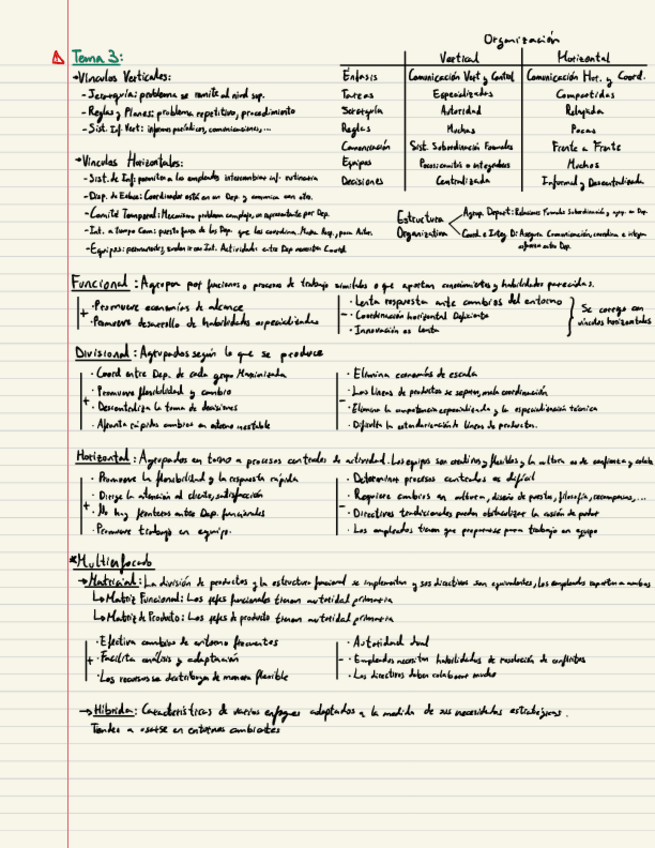 Organización
Tema 3:
Vertical Horizontal
→Vínculos Verticales:
Énfasis Comunicación Vert y Control Comunicación Hor. y Coord.
- Jerarquía: problema se remite al nivel sup.
Tareas Especializadas Compartidas
- Reglas y Planes: problema repetitivo, procedimiento
Jerarquía Autoridad Relajada
- Sist. Inf. Vert: informes periódicos, comunicaciones,...
Reglas Muchas Pocas
Comunicación Sist. Subordinación Formales Frente a Frente
→Vínculos Horizontales:
Equipos Pocos: comités o integradores Muchos
- Sist. de Inf: permiten a los empleados intercambiar inf. rutinaria
Decisiones Centralizada Informal y Descentralizada
- Disp. de Enlace: Coordinador está en un Dep. y comunica con otro.
- Comité Temporal: Mecanismo problema complejo, un representante por Dep.
Estructura Organizativa
Agrup. Depart: Relaciones Formales Subordinación, y agrup. en Dep.
- Int. a Tiempo Com: puesto fuera de los Dep. que los coordina. Mucha Resp, poca Autor.
Coord. e Integ. Di: Asegura Comunicación, coordina e integra esfuerzo entre Dep.
- Equipos: permanentes, suelen ir con Int. Actividades entre Dep necesitan Coord
Funcional: Agrupan por funciones o procesos de trabajo similares o que aportan conocimientos y habilidades parecidas.
+ · Promueve economías de alcance
· Promueve desarrollo de habilidades especializadas
- · Lenta respuesta ante cambios del entorno
· Coordinación horizontal Deficiente
· Innovación es lenta
Se corrige con vínculos horizontales
Divisional: Agrupados según lo que se produce
+ · Coord entre Dep. de cada grupo Maximizada
· Promueve flexibilidad y cambio
· Descentraliza la toma de decisiones
· Afronta rápidos cambios en entorno inestable
- · Elimina economías de escala
· Las líneas de productos se separan, mala coordinación
· Elimina la competencia especializada y la especialización técnica
· Dificulta la estandarización de líneas de productos.
Horizontal: Agrupados en torno a procesos centrales de actividad. Los equipos son creativos y flexibles y la cultura es de confianza y colab
+ · Promueve la flexibilidad y la respuesta rápida
· Dirige la atención al cliente, satisfacción
· No hay fronteras entre Dep. funcionales
· Promueve trabajo en equipo.
- · Determinar procesos centrales es difícil
· Requiere cambios en cultura, diseño de puesto, filosofía, recompensas,...
· Directivos tradicionales pueden obstaculizar la cesión de poder
· Los empleados tienen que prepararse para trabajo en equipo
*Multienfocado
→Matricial: La división de productos y la estructura funcional se implementan y sus directivos son equivalentes, los empleados reportan a ambos
↳Matriz Funcional: Los jefes funcionales tienen autoridad primaria
↳Matriz de Producto: Los jefes de producto tienen autoridad primaria
+ · Efectiva cambios de entorno frecuentes
· Facilita análisis y adaptación
· Los recursos se distribuyen de manera flexible
- · Autoridad dual
· Empleados necesitan habilidades de resolución de conflictos
· Los directivos deben colaborar mucho
→Híbrida: Características de varios enfoques adaptados a la medida de sus necesidades estratégicas.
Tiende a usarse en entornos cambiantes